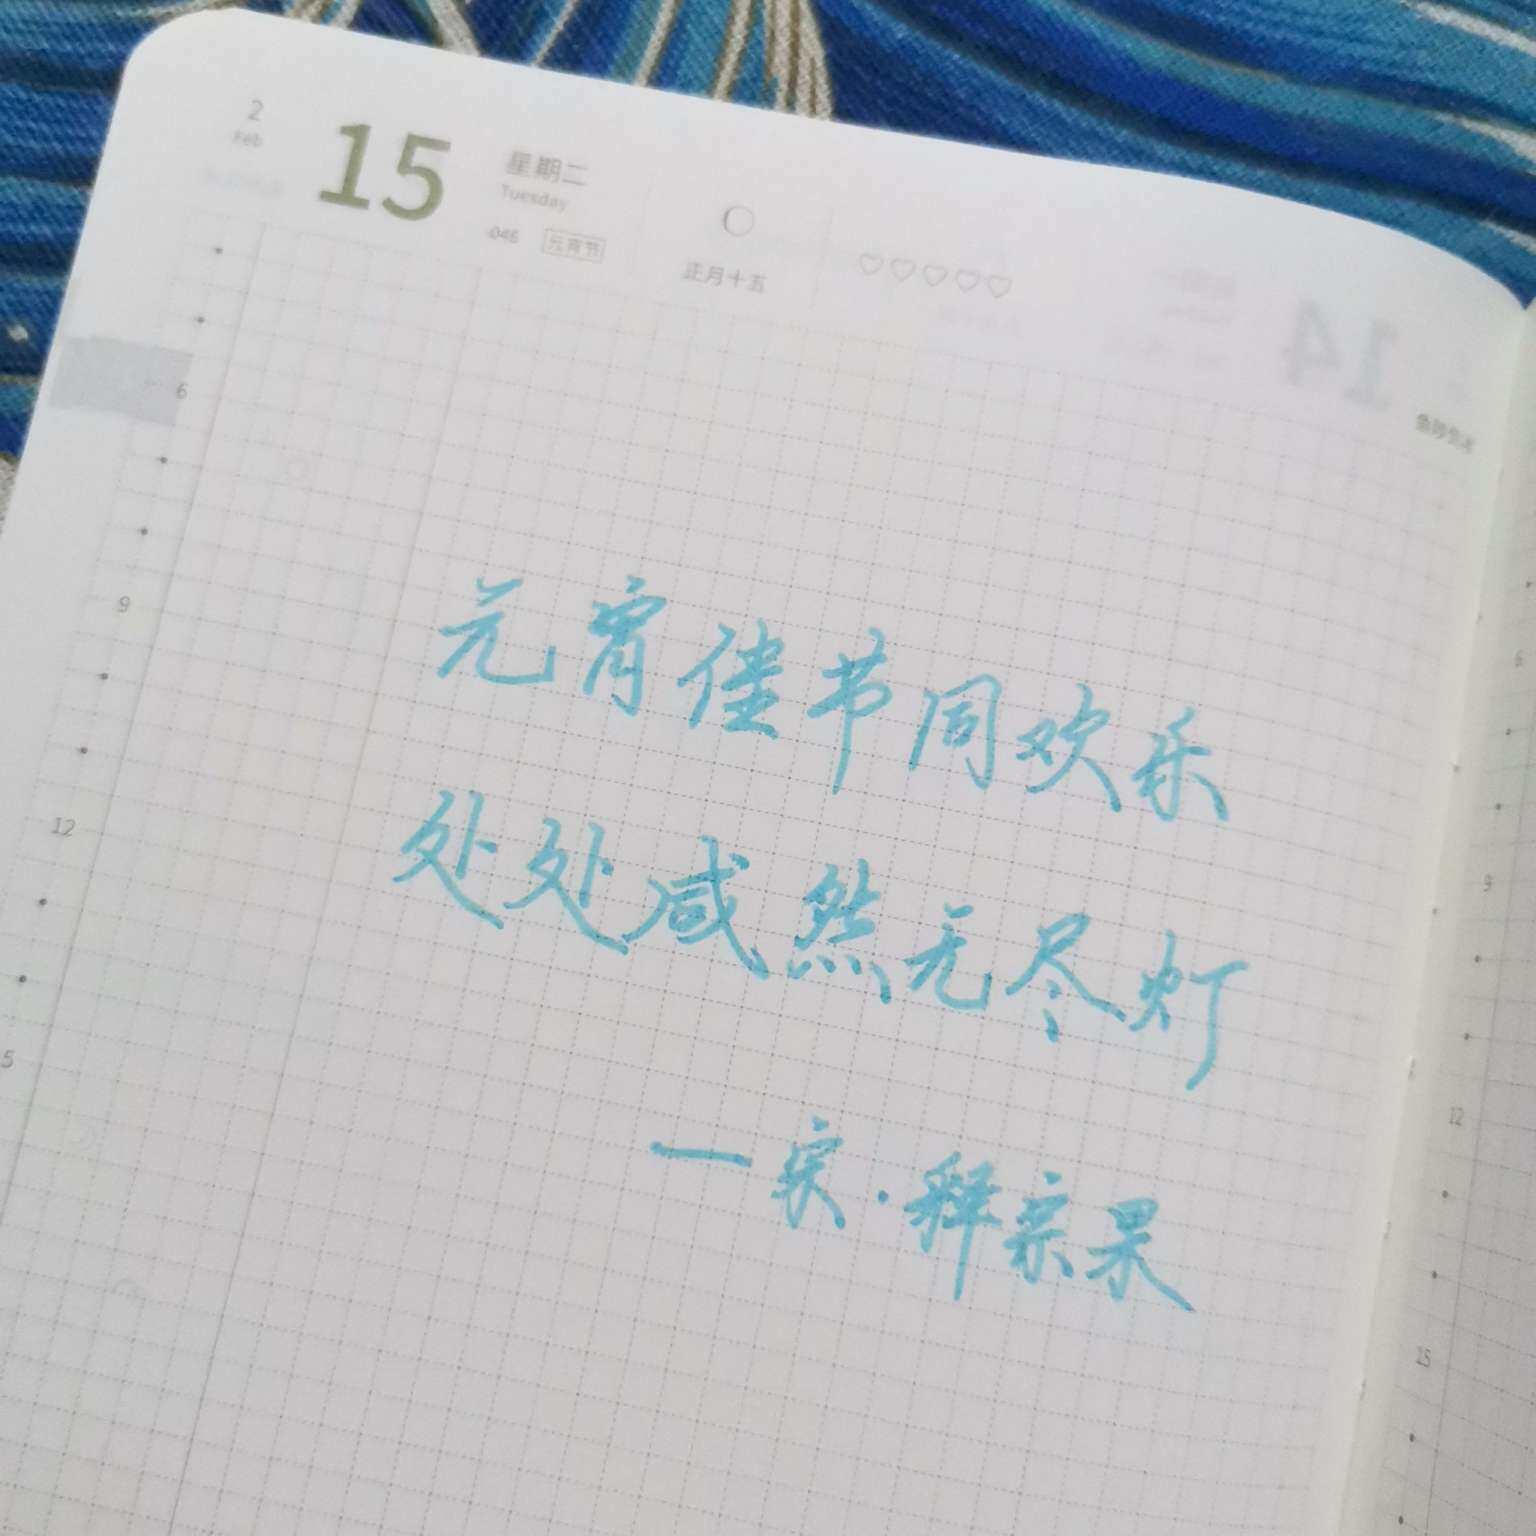 2
Feb
15
星期二
Tuesday
046 元宵节
正月十五
6
9
12
元宵佳节同欢乐
处处咸然无尽灯
一宋·释宗杲
14
5
9
12
15